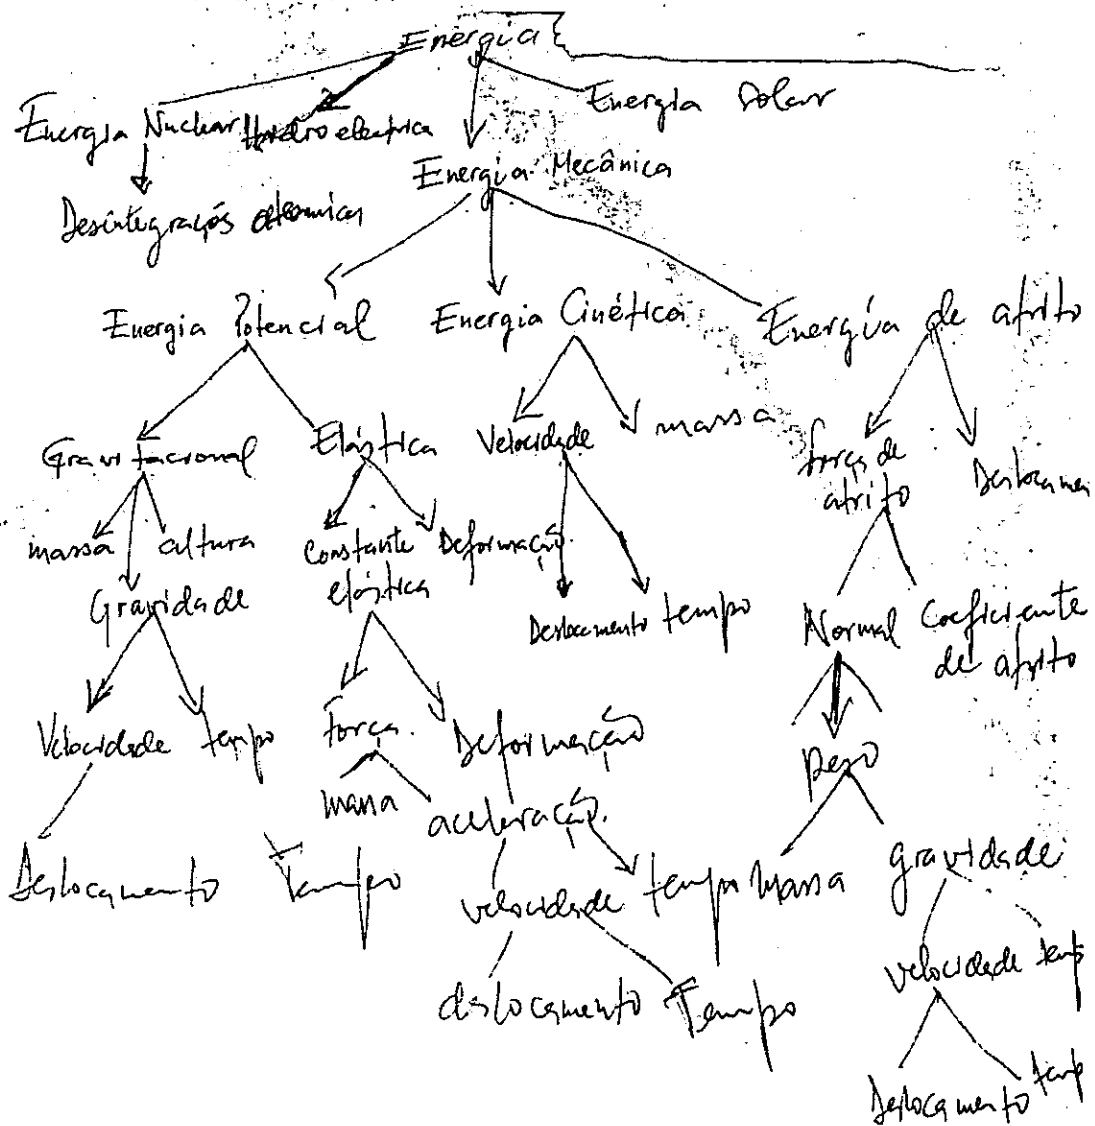 Energia
Energia Nuclear Hidroelectrica
Energia Solar
Energia Mecânica
Desintegração atomica
Energia Potencial Energia Cinética Energia de atrito
Gravitacional Elástica Velocidade massa força de atrito Deslocamen
massa altura Constante elástica Deformação
Gravidade Deslocamento tempo Normal Coeficiente de atrito
Velocidade tempo Força Deformação peso
massa aceleração
Deslocamento Tempo velocidade tempo Massa gravidade
deslocamento Tempo velocidade temp
Deslocamento temp